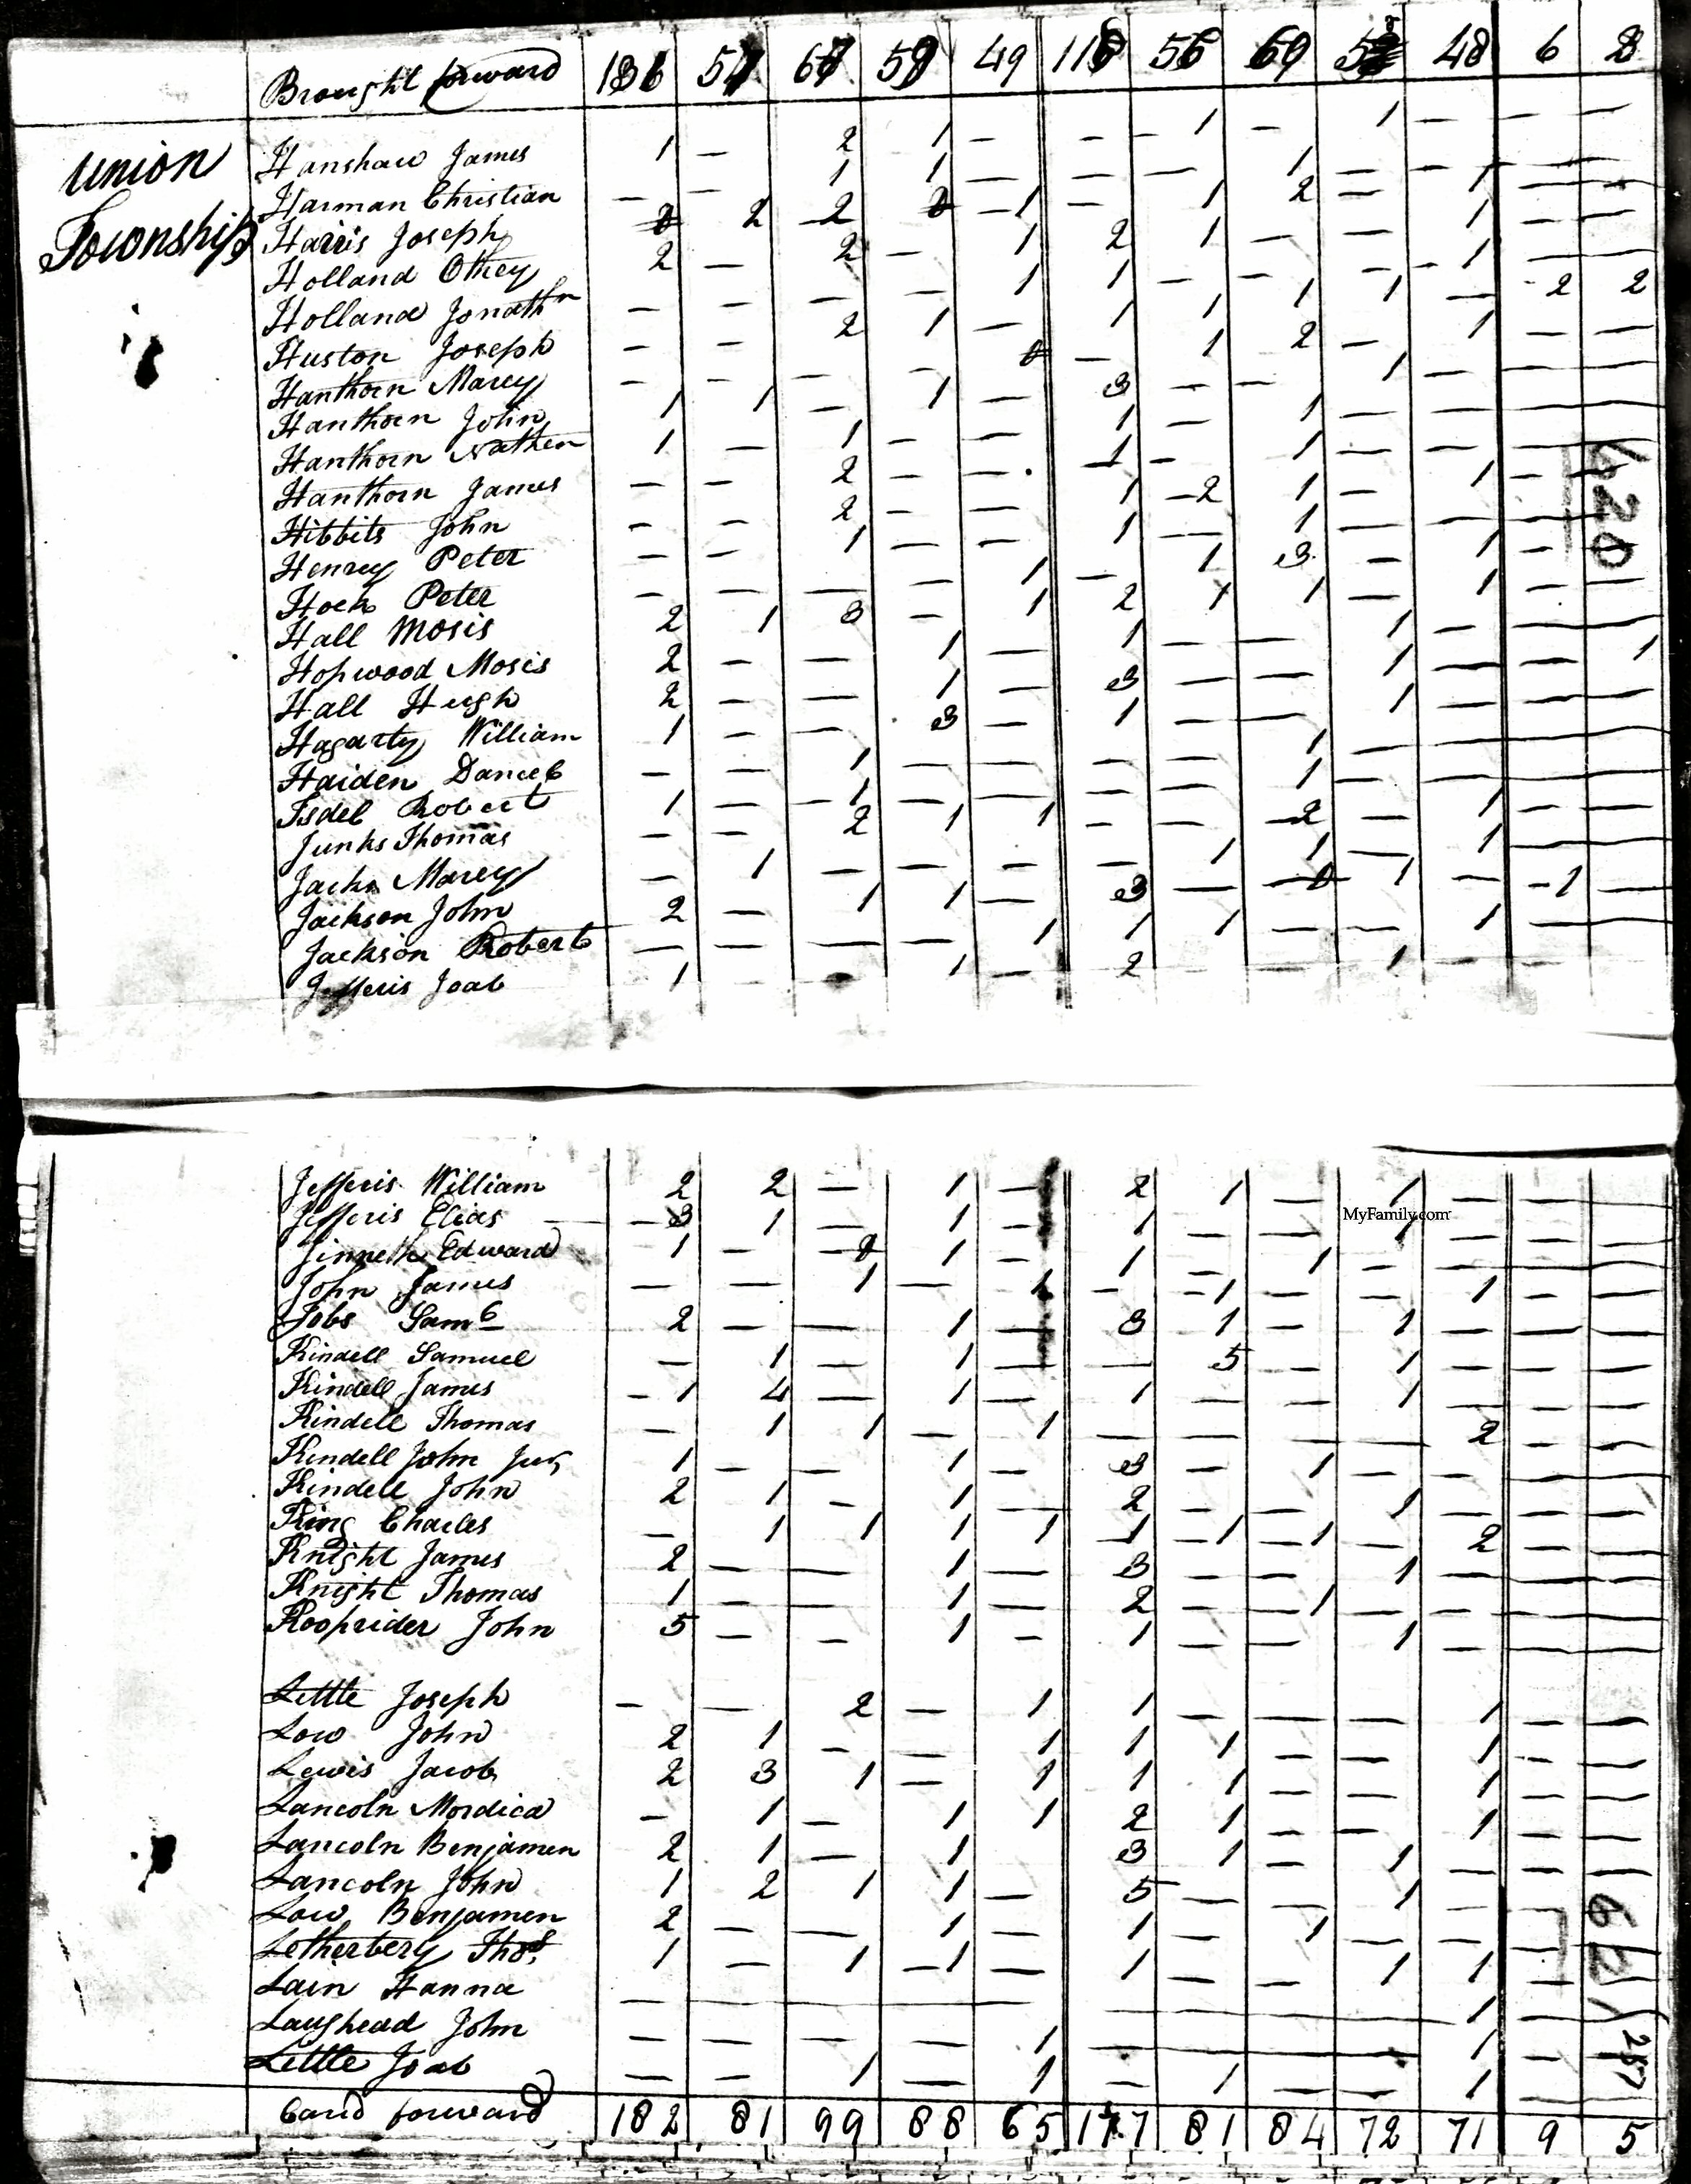 Brought forward 136 57 67 59 49 116 56 69 48 6 2
Union Township
Hanshaw James 1 — 2 1 — — — 1 — 1 — — —
Harman Christian — — 1 1 — — — 1 — 1 — —
Harris Joseph 0 2 2 0 1 — 1 2 — 1 — —
Holland Othey 2 — 2 — 1 2 1 — — 1 — —
Holland Jonathn — — — — 1 1 — — — 1 — —
Huston Joseph — — 2 1 — 1 1 1 1 — 2 2
Hanthorn Marey — — — — 0 — 1 2 — 1 — —
Hanthorn John 1 1 — 1 — 3 — — 1 — — —
Hanthorn Nathen 1 — 1 — — 1 — 1 — — — —
Hanthorn James — — 2 — — 1 — 1 — — — —
Hibbits John — — 2 — — 1 2 1 — 1 — —
Henrey Peter — — 1 — — 1 — 1 — — — —
Hock Peter — — — — 1 — 1 3 — 1 — —
Hall Mosis 2 1 3 — 1 2 1 1 — 1 — —
Hopwood Mosis 2 — — 1 — 1 — — 1 — — —
Hall Hugh 2 — — 1 — 3 — — 1 — — 1
Hagarty William 1 — — 3 — 1 — — 1 — — —
Haiden Daneel — — 1 — — — — 1 — — — —
Isdel Robert 1 — 1 — — — — 1 — — — —
Junks Thomas — — 2 1 1 — — 2 — 1 — —
Jacks Marey — 1 — — — — 1 1 — 1 — —
Jackson John 2 — 1 1 — 3 — 0 1 — 1 —
Jackson Robert — — — — 1 1 1 — — 1 — —
Jefferis Joab 1 — — 1 — 2 — — 1 — — —
620
Jefferis William 2 2 — 1 — 2 1 — 1 — — —
MyFamily.com
Jefferis Elias 3 1 — 1 — 1 — — 1 — — —
Edward 1 — 0 1 — 1 — 1 — — — —
John James — — 1 — 1 — 1 — — 1 — —
Jobs Saml 2 — — 1 — 3 1 — 1 — — —
Kindell Samuel — 1 — 1 — — 5 — 1 — — —
Kindell James 1 4 — 1 — 1 — — 1 — — —
Kindell Thomas — 1 1 — 1 — — — — 2 — —
Kindell John Jur 1 — — 1 — 3 — 1 — — — —
Kindell John 2 1 — 1 — 2 — — 1 — — —
King Charles — 1 1 1 1 1 1 1 — 2 — —
Knight James 2 — — 1 — 3 — — 1 — — —
Knight Thomas 1 — — 1 — 2 — 1 — — — —
Kooprider John 5 — — 1 — 1 — — 1 — — —
Little Joseph — — 2 — 1 1 — — — 1 — —
Low John 2 1 — — 1 1 1 — — 1 — —
Lewis Jacob 2 3 1 — 1 1 1 — — 1 — —
Lancoln Mordica — 1 — 1 1 2 1 — — 1 — —
Lancoln Benjamen 2 1 — 1 — 3 1 — 1 — — —
Lancoln John 1 2 1 1 — 5 — — 1 — — —
Low Benjamen 2 — — 1 — 1 — 1 — — — —
Letherbery Thos. 1 — 1 1 — 1 — — 1 1 — —
Lain Hanna — — — — — — — — — 1 — —
Laughead John — — — — 1 — — — — 1 — —
Little Joab — — 1 — 1 — 1 — — 1 — —
621
257
Card forward 182 81 99 88 65 177 81 84 72 71 9 5